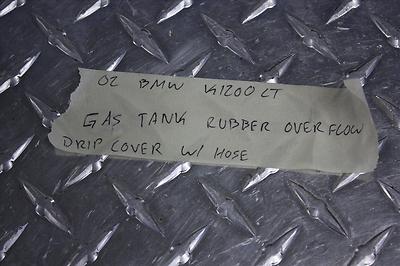 02 BMW K1200 LT
GAS TANK RUBBER OVERFLOW
DRIP COVER W/ HOSE